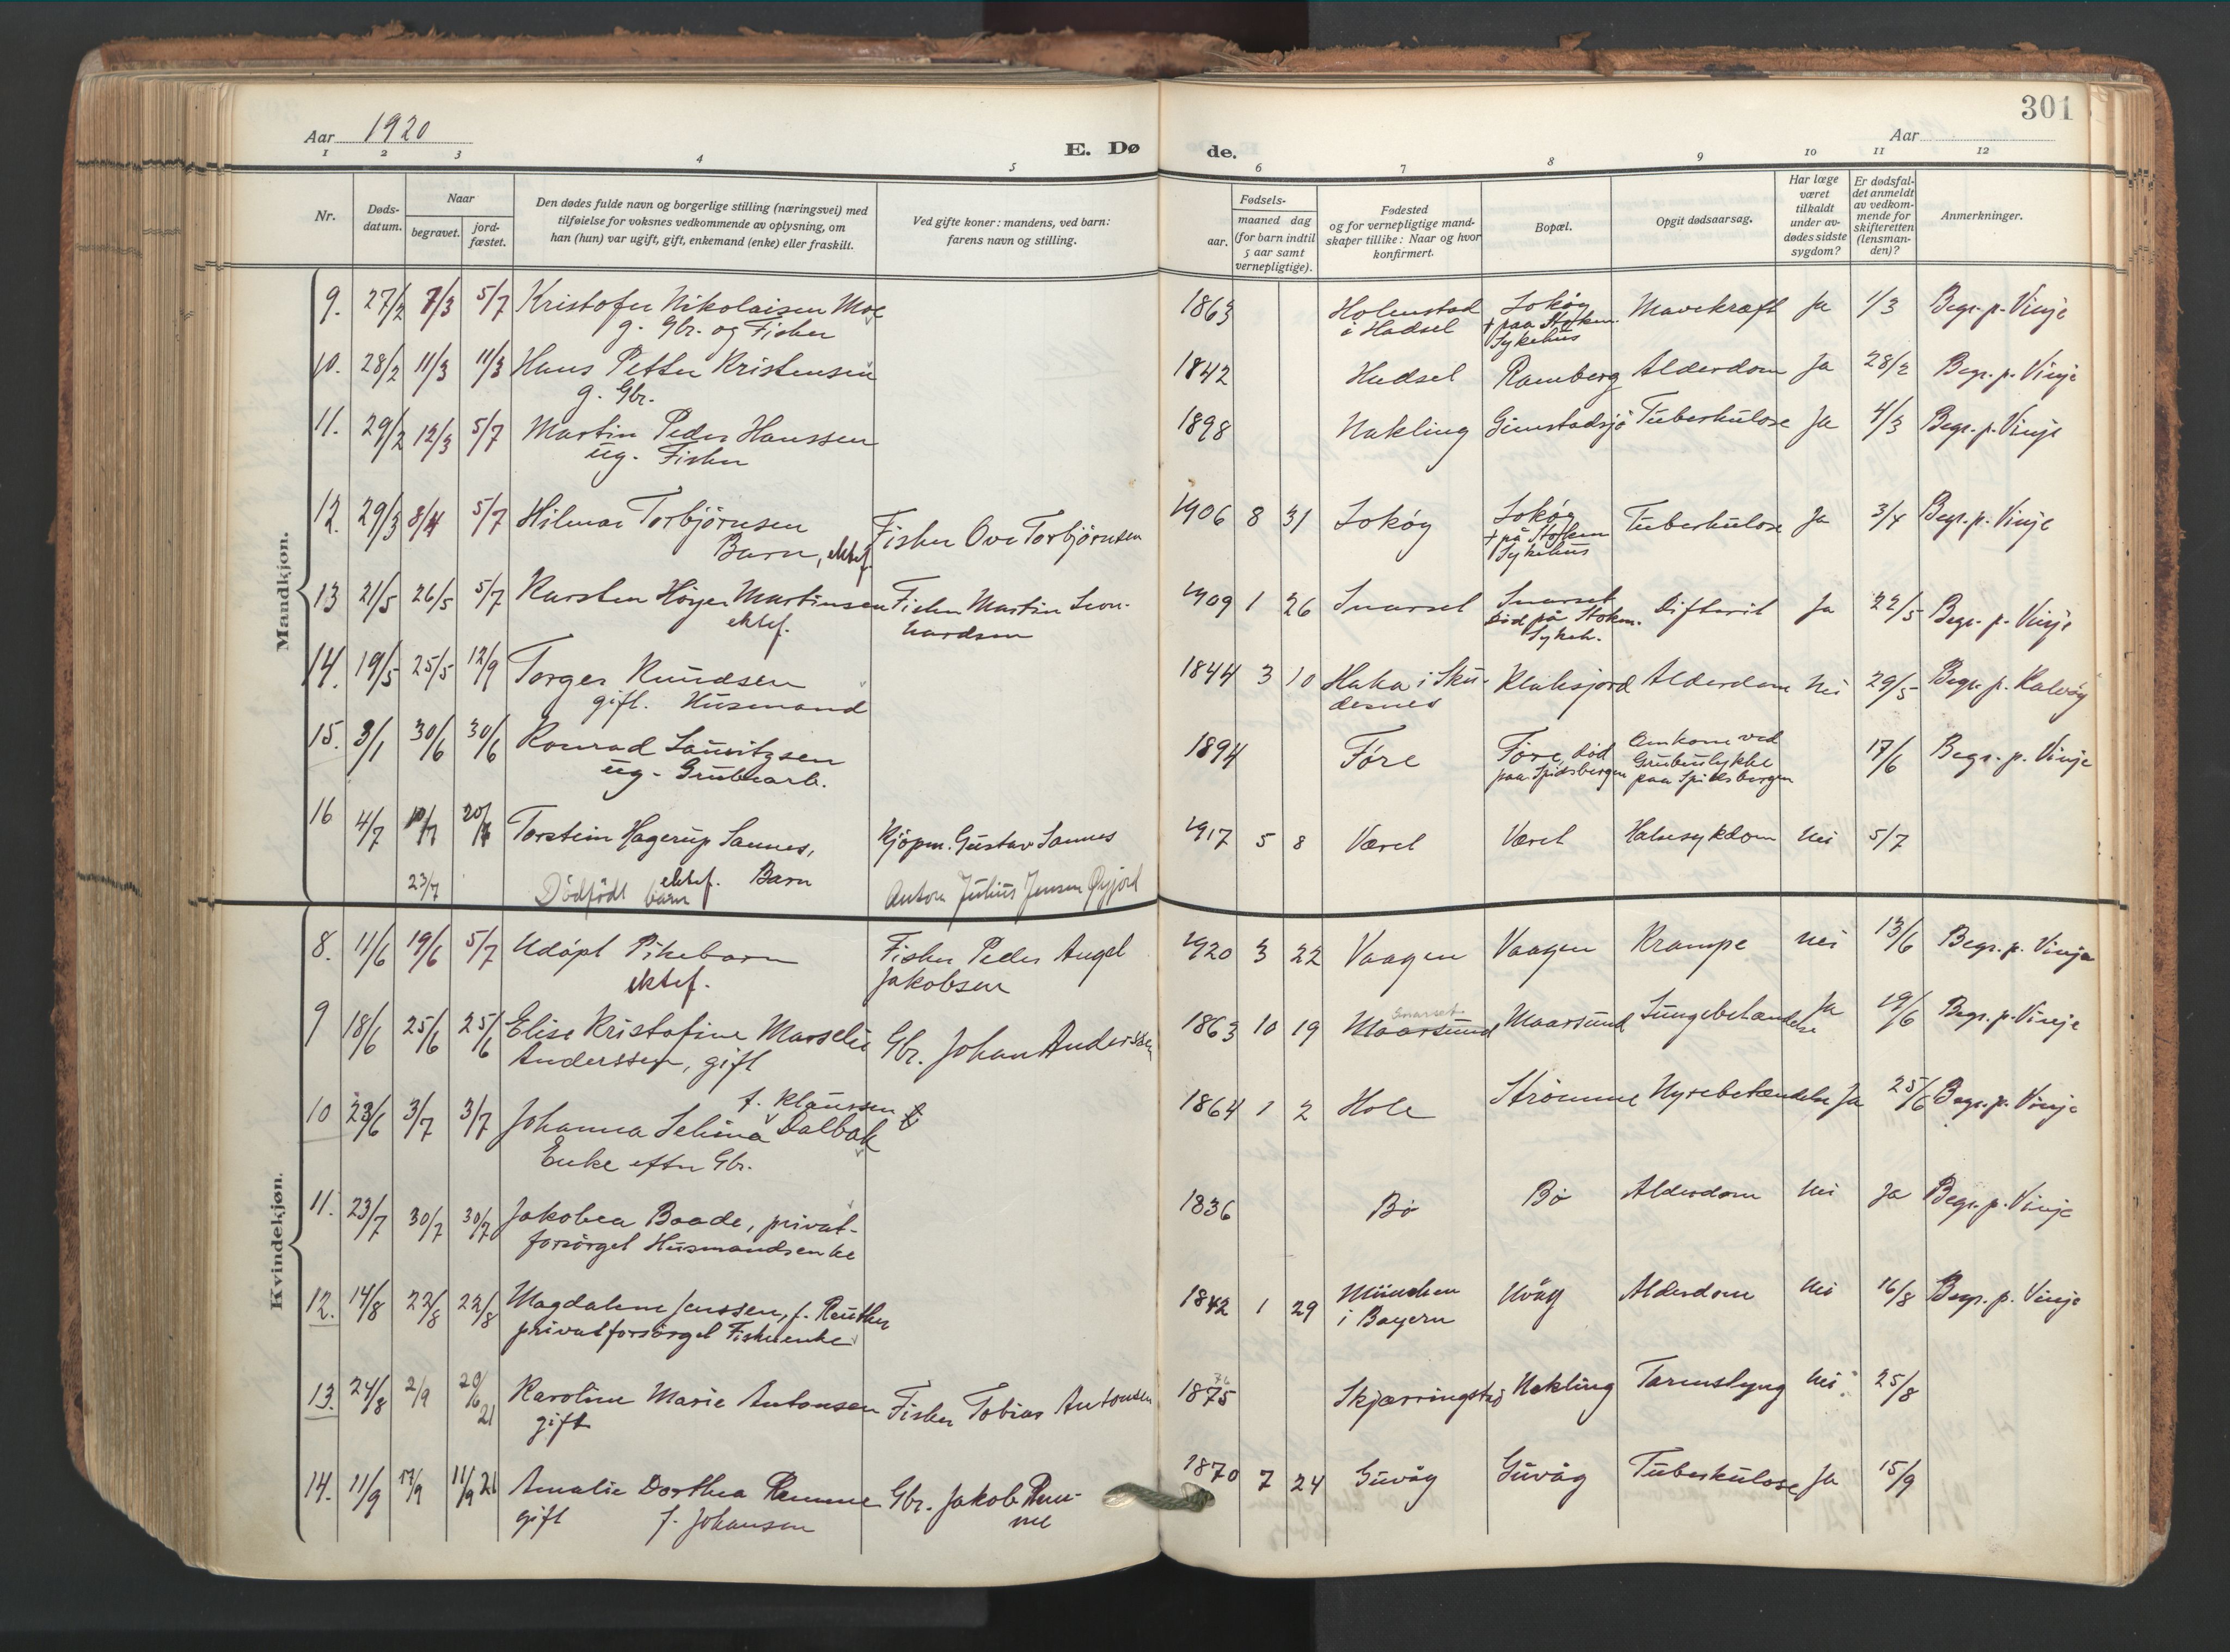 301
Aar 1920
Aar
E. Dø de.
1 2 3 4 5 6 7 8 9 10 11 12
Nr.
Døds-
datum.
Naar
begravet.
jord-
fæstet.
Den dødes fulde navn og borgerlige stilling (næringsvei) med
tilføielse for voksnes vedkommende av oplysning, om
han (hun) var ugift, gift, enkemand (enke) eller fraskilt.
Ved gifte koner: mandens, ved barn:
farens navn og stilling.
Fødsels-
aar.
maaned dag
(for barn indtil
5 aar samt
vernepligtige).
Fødested
og for vernepligtige mand-
skaper tillike: Naar og hvor
konfirmert.
Bopæl.
Opgit dødsaarsag.
Har læge
været
tilkaldt
under av-
dødes sidste
sygdom?
Er dødsfal-
det anmeldt
av vedkom-
mende for
skifteretten
(lensman-
den)?
Anmerkninger.
Mandkjøn.
9. 27/2 7/3 5/7 Kristofer Nikolaisen Moe 1863 Holmstad Jokøy Mavekræft Ja 1/3 Begr. p. Vinje
g. gbr. og Fisker i Hadsel + paa Stokm.
Sykehus
10. 28/2 11/3 11/3 Hans Petter Kristensen 1842 Hadsel Ramberg Alderdom Ja 28/2 Begr. p. Vinje
g. Gbr.
11. 29/2 12/3 5/7 Martin Peder Hanssen 1898 Nakling Guvstadsjø Tuberkulose Ja 4/3 Begr. p. Vinje
ug. Fisker
12. 29/3 8/4 5/7 Hilmar Torbjørnsen Fisker Ove Torbjørnsen 1906 8 31 Jokøy Jokøy Tuberkulose Ja 3/4 Begr. p. Vinje
Barn, ektef. + på Stokm
Sykehus
13 21/5 26/5 5/7 Karsten Höyer Martinsen Fisker Martin Leon- 1909 1 26 Snarset Snarset Difterit Ja 22/5 Begr. p. Vinje
ektef. hardsen død på Stokm.
Sykeh.
14. 19/5 25/5 12/9 Torger Knudsen 1844 3 10 Haka i Sku- Klaksjord Alderdom Nei 29/5 Begr. p. Kalvåg
gift. Husmand desnes
15. 3/1 30/6 30/6 Konrad Lauritzsen 1894 Føre Føre, død Omkom ved 17/6 Begr. p. Vinje
ug. Grubearb. paa Spidsbergen Grubeulykke
paa Spidsbergen
16 4/7 10/7 20/7 Torstein Hagerup Sannes, Kjöpm. Gustav Sannes 1917 5 8 Været Været Halsesykdom Nei 5/7
ektef. Barn
23/7 Dødfödt barn Anton Julius Jensen Øyjord
Kvindekjøn.
8. 11/6 19/6 5/7 Udöpt Pikebarn Fisker Peder Angel 1920 3 22 Vaagen Vaagen Krampe Nei 13/6 Begr. p. Vinje
ektef. Jakobsen
Snarset
9 18/6 25/6 25/6 Elise Kristofine Marselie Gbr. Johan Anderssen 1863 10 19 Maarsund Maarsund Lungebetændelse Ja 19/6 Begr. p. Vinje
Anderssen, gift
f. Klaussen
10 23/6 3/7 3/7 Johanna Selina Dalbak 1864 1 2 Hole Strømme Nyrebetændelse Ja 25/6 Begr. p. Vinje
Enke efter Gbr.
11. 23/7 30/7 30/7 Jakobea Baade, privat- 1836 Bø Bø Alderdom Nei Ja Begr. p. Vinje
forsörget Husmandsenke
12. 14/8 22/8 22/8 Magdalene Jenssen, f. Reuther 1842 1 29 München Uvåg Alderdom Nei 16/8 Begr. p. Vinje
privatforsörget Fiskerenke i Bayern
13. 24/8 2/9 20/6 21 Karoline Marie Antonsen Fisker Tobias Antonsen 1875 76 Skjærringstad Nakling Tarmslyng Nei 25/8
gift
14. 11/9 17/9 11/9 21 Amalie Dorthea Remme Gbr. Jakob Rem- 1870 7 24 Guvåg Guvåg Tuberkulose Ja 15/9
gift f. Johansen me